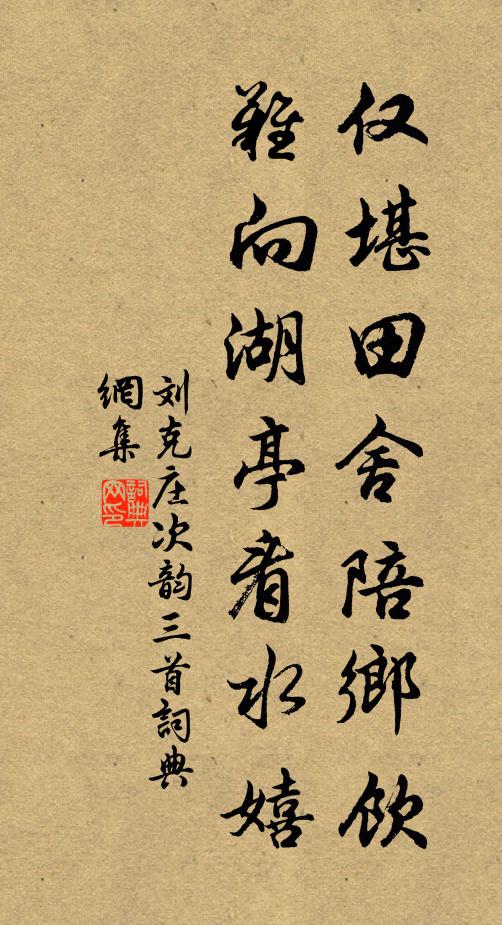 仅堪田舍陪鄉饮
難向湖亭看水嬉
刘克庄次韵三首詞典
網集
詞典网印